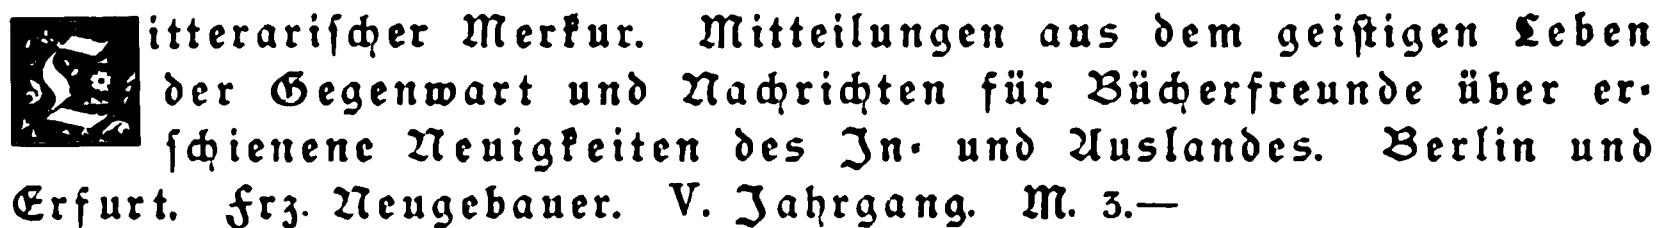 Litterarischer Merkur. Mitteilungen aus dem geistigen Leben
der Gegenwart und Nachrichten für Bücherfreunde über er-
schienene Neuigkeiten des In- und Auslandes. Berlin und
Erfurt. Frz. Neugebauer. V. Jahrgang. M. 3.—